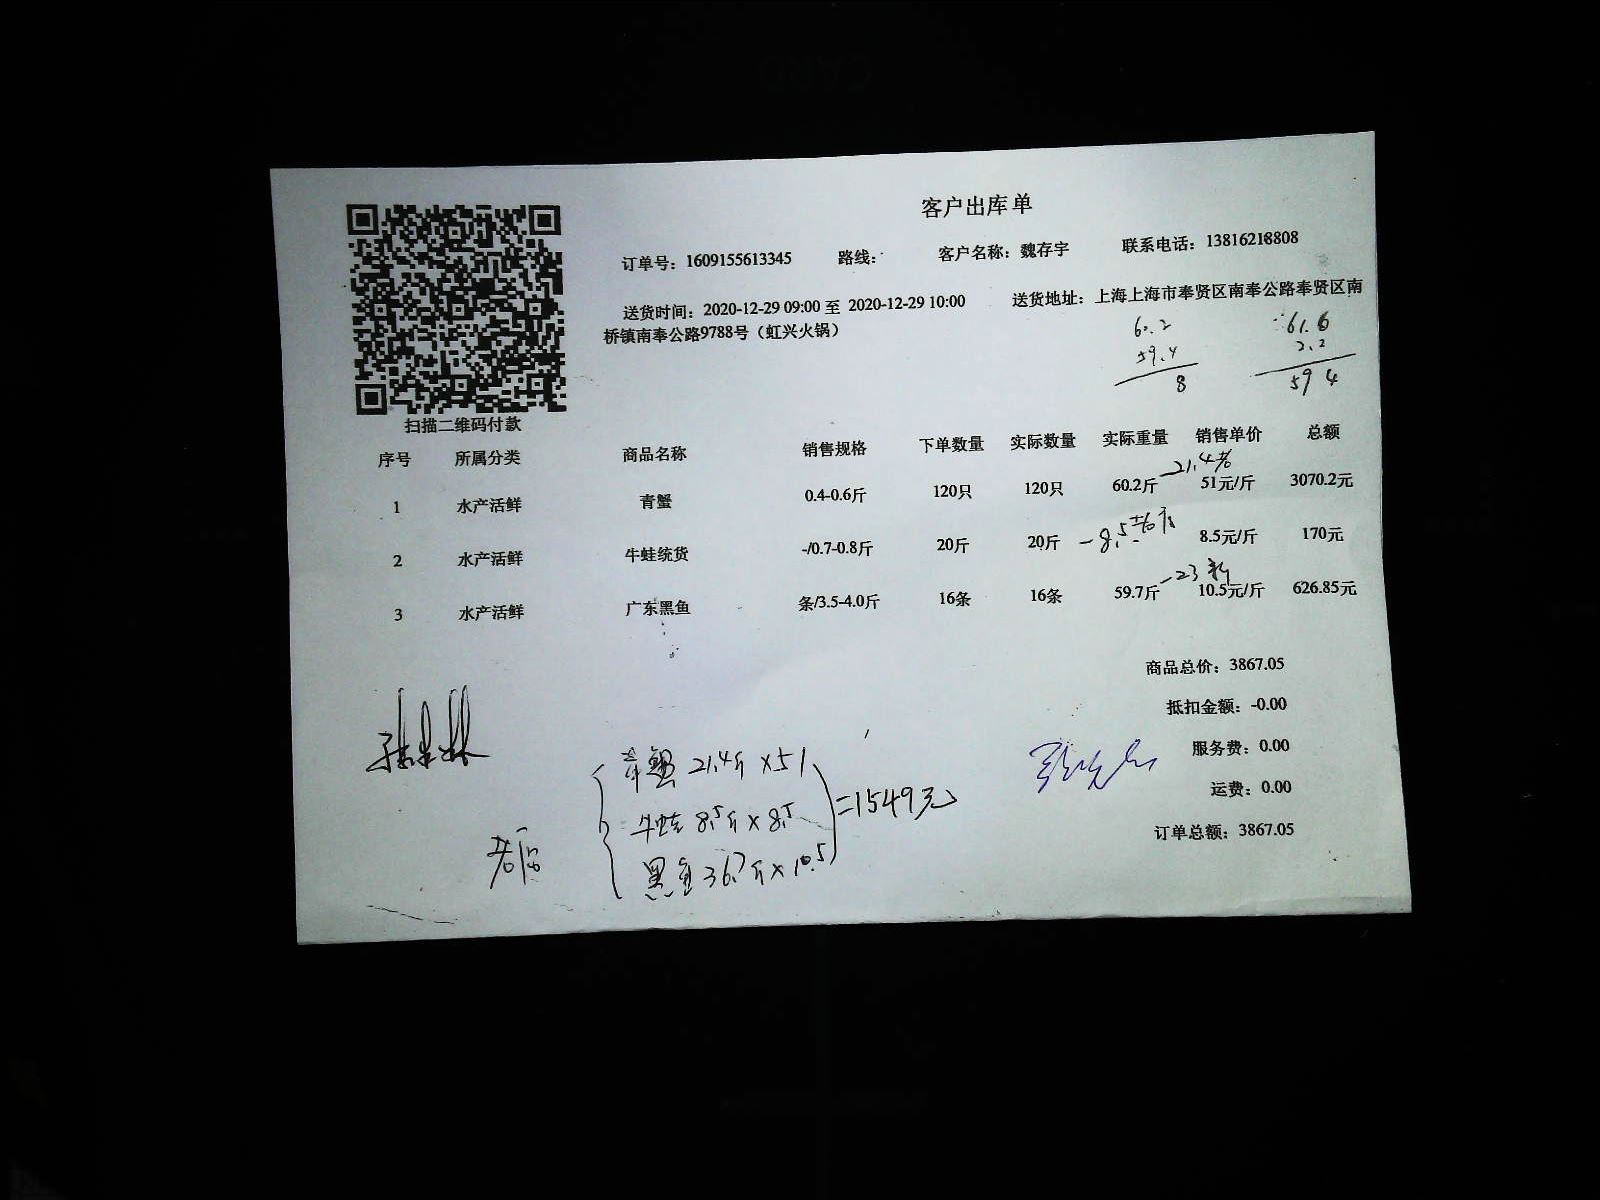 客户出库单
订单号：1609155613345 路线： 客户名称：魏存宇 联系电话：13816218808
送货时间：2020-12-29 09:00 至 2020-12-29 10:00 送货地址：上海上海市奉贤区南奉公路奉贤区南
桥镇南奉公路9788号（虹兴火锅）
60.2 61.6
59.4 2.2
8 59 4
扫描二维码付款
序号 所属分类 商品名称 销售规格 下单数量 实际数量 实际重量 销售单价 总额
-21.4
1 水产活鲜 青蟹 0.4-0.6斤 120只 120只 60.2斤 51元/斤 3070.2元
2 水产活鲜 牛蛙统货 -/0.7-0.8斤 20斤 20斤 -8.5 8.5元/斤 170元
-23斤
3 水产活鲜 广东黑鱼 条/3.5-4.0斤 16条 16条 59.7斤 10.5元/斤 626.85元
商品总价：3867.05
抵扣金额：-0.00
服务费：0.00
运费：0.00
订单总额：3867.05
青蟹 21.4斤×51
牛蛙 8.5斤×8.5 =1549元
黑鱼 36.7斤×10.5
老店